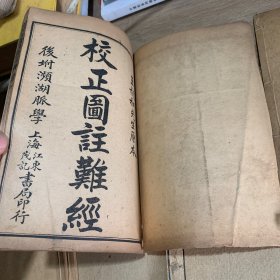 校正圖註難經
後坿瀕湖脈學
上海江東
茂記書局印行